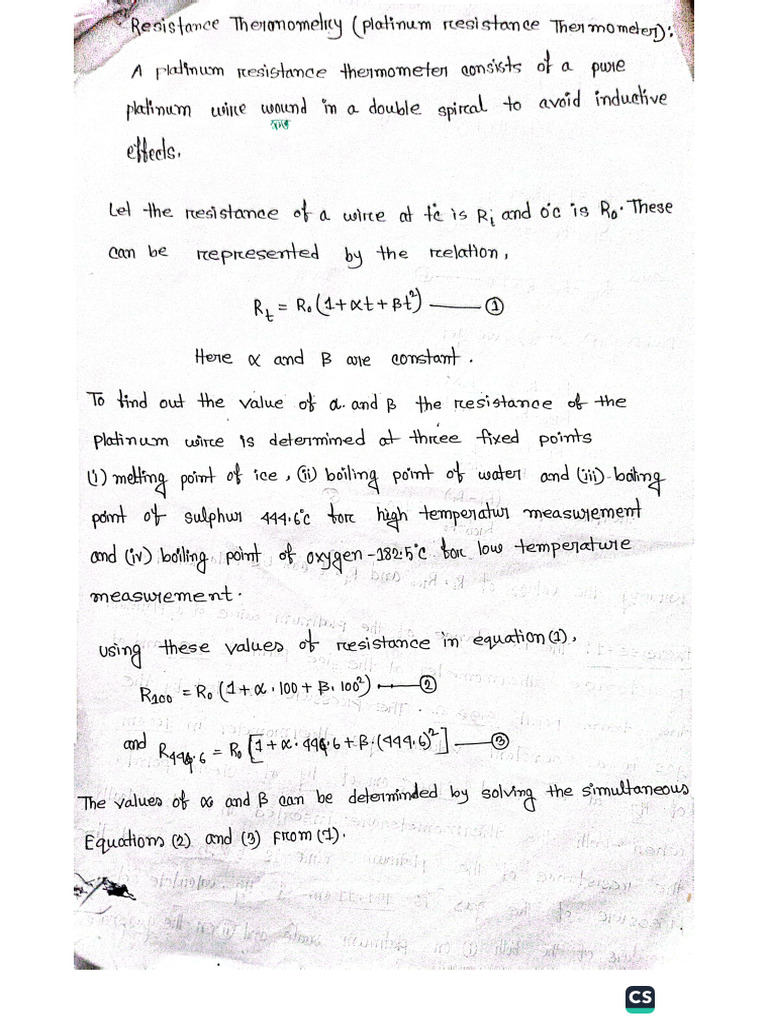 Resistance Thermometry (platinum resistance Thermometer):
A platinum resistance thermometer consists of a pure
platinum wire wound in a double spiral to avoid inductive
effects.
Let the resistance of a wire at t°c is Rt and 0°c is R₀. These
can be represented by the relation,
Rt = R₀ (1+αt+βt²) —— ①
Here α and β are constant.
To find out the value of α and β the resistance of the
platinum wire is determined at three fixed points
(i) melting point of ice, (ii) boiling point of water and (iii) boiling
point of sulphur 444.6°c for high temperatur measurement
and (iv) boiling point of oxygen -182.5°c for low temperature
measurement.
using these values of resistance in equation (1),
R₁₀₀ = R₀ (1+α.100+β.100²) —— ②
and R₄₄₄.₆ = R₀ [1+α.444.6+β.(444.6)²] —— ③
The values of α and β can be determinded by solving the simultaneous
Equations (2) and (3) From (1).
CS